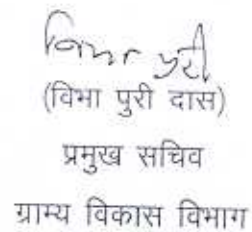 विभा पुरी
(विभा पुरी दास)
प्रमुख सचिव
ग्राम्य विकास विभाग